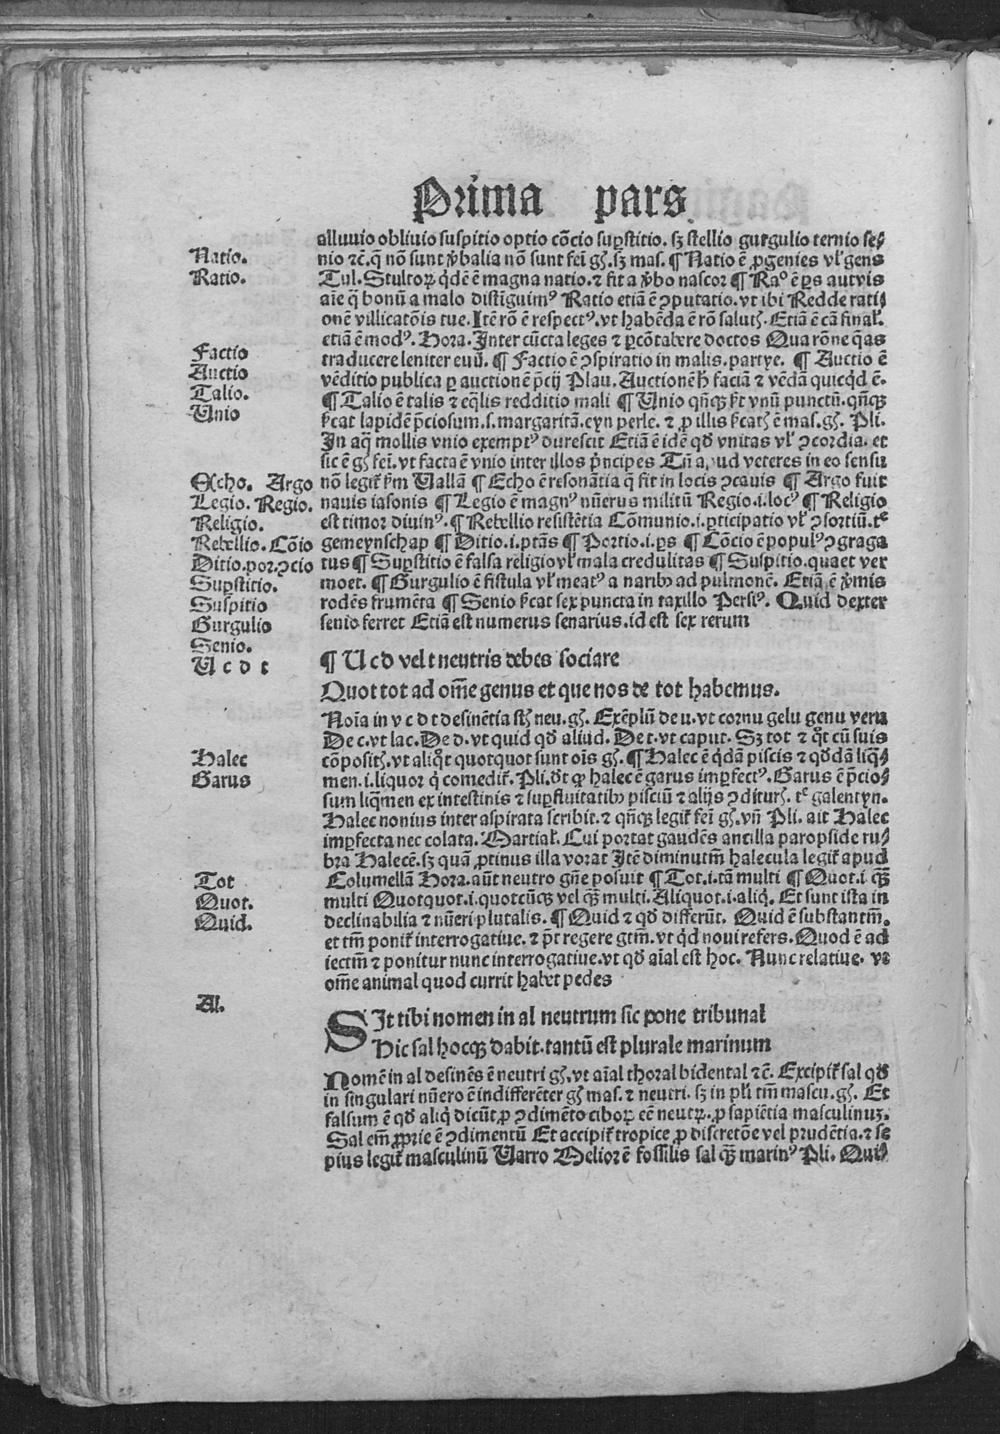 Prima pars
alluuio obliuio suspitio optio cõcio suꝑstitio. sꝫ stellio gurgulio ternio se⸗
Natio. nio ⁊c̃. q̃ nõ sunt v̓balia nõ sunt fei gñ. sꝫ mas. ¶ Natio ẽ ꝓgenies vl' gens
Ratio. Tul. Stultoꝝ q̓dẽ ẽ magna natio. ⁊ fit a v̓bo nascor ¶ Raº ẽ ꝑs aut vis
aĩe q̃ bonũ a malo distĩguimꝰ Ratio etiã ẽ ꝯputatio. vt ibi Redde rati⸗
onẽ villicatõis tue. Itẽ rõ ẽ respectꝰ. vt habẽda ẽ rõ salutꝭ. Etiã ẽ cã final'.
etiã ẽ modꝰ. Hora. Inter cũcta leges ⁊ ꝑcõtabere doctos Qua rõne q̃as
Factio traducere leniter euũ. ¶ Factio ẽ ꝯspiratio in malis. partye. ¶ Auctio ẽ
Auctio vẽditio publica ꝑ auctionẽ p̃cij Plau. Auctionẽ h̃ faciã ⁊ vẽdã quicq̓d ẽ.
Talio. ¶ Talio ẽ talis ⁊ eq̃lis redditio mali ¶ Unio qñqꝫ s̃t vnũ punctũ. qñqꝫ
Unio s̃cat lapidẽ p̃ciosum. s. margaritã. eyn perle. ⁊ ꝓ illis s̃catꝭ ẽ mas. gñ. Pli.
In aq̃ mollis vnio exemptꝰ durescit Etiã ẽ idẽ qđ vnitas vl' ꝯcordia. et
sic ẽ gñ fei. vt facta ẽ vnio inter illos p̓ncipes Tñ apud veteres in eo sensu
Echo. Argo nõ legit̃ s̃m Uallã ¶ Echo ẽ resonãtia q̃ fit in locis ꝯcauis ¶ Argo fuit
Legio. Regio. nauis iasonis ¶ Legio ẽ magnꝰ nũerus militũ Regio. i. locꝰ ¶ Religio
Religio. est timor diuinꝰ. ¶ Rebellio resistẽtia Cõmunio. i. ꝑticipatio vl' ꝯsortiũ. t'
Rebellio. Cõio gemeynschap ¶ Ditio. i. ptãs ¶ Portio. i. ꝑs ¶ Cõcio ẽ populꝰ ꝯgraga
Ditio. por. ꝯcio tus ¶ Suꝑstitio ẽ falsa religio vl' mala credulitas ¶ Suspitio. quaet ver
Suꝑstitio. moet. ¶ Gurgulio ẽ fistula vl' meatꝰ a naribꝰ ad pulmonẽ. Etiã ẽ v̓mis
Suspitio rodẽs frumẽta ¶ Senio s̃cat sex puncta in taxillo Persiꝰ. Quid dexter
Gurgulio senio ferret Etiã est numerus senarius. id est sex rerum
Senio.
U c d t ¶ U c d vel t neutris debes sociare
Quot tot ad om̃e genus et que nos de tot habemus.
Noĩa in v c d t desinẽtia st̃ neu. gñ. Exẽplũ de u. vt cornu gelu genu veru
De c. vt lac. De d. vt quid qđ aliud. De t. vt caput. Sꝫ tot ⁊ q̓t cũ suis
Halec cõpositꝭ. vt aliq̓t quotquot sunt oĩs gñ. ¶ Halec ẽ q̓dã piscis ⁊ qđdã liq̃⸗
Garus men. i. liquor q̓ comedit̃. Pli. đt ꝙ halec ẽ garus imꝑfectꝰ. Garus ẽ p̃cio⸗
sum liq̃men ex intestinis ⁊ suꝑfluitatibꝰ pisciũ ⁊ alijs ꝯditurꝭ. t' galentyn.
Halec nonius inter aspirata scribit. ⁊ qñqꝫ legit̃ fei gñ. vñ Pli. ait Halec
imꝑfecta nec colata. Martial'. Cui portat gaudẽs ancilla paropside ru⸗
bra Halecẽ. sꝫ quã ꝓtinus illa vorat Itẽ diminutiũ halecula legit̃ apud
Tot Columellã Hora. aũt neutro gñe posuit ¶ Tot. i. tã multi ¶ Quot. i qꝫ̃
Quot. multi Quotquot. i. quotcũqꝫ vel qꝫ̃ multi. Aliquot. i. aliq̓. Et sunt ista in
Quid. declinabilia ⁊ nũeri pluralis. ¶ Quid ⁊ qđ differũt. Quid ẽ substantiũ.
et tm̃ ponit̃ interrogatiue. ⁊ p̃t regere gtm̃. vt q̓d noui refers. Quod ẽ ad
iectiũ ⁊ ponitur nunc interrogatiue. vt qđ aĩal est hoc. Nunc relatiue. vt
om̃e animal quod currit habet pedes
Al. SIt tibi nomen in al neutrum sic pone tribunal
Hic sal hocqꝫ dabit. tantũ est plurale marinum
Nomẽ in al desinẽs ẽ neutri gñ. vt aĩal thoral bidental ⁊c̃. Excipit̃ sal qđ
in singulari nũero ẽ indifferẽter gñ mas. ⁊ neutri. sꝫ in pl'i tm̃ mascu. gñ. Et
falsum ẽ qđ aliq̓ dicũt ꝓ ꝯdimẽto ciboꝝ eẽ neutꝝ. ꝓ sapiẽtia masculinuꝫ.
Sal em̃ ꝓprie ẽ ꝯdimentũ Et accipit̃ tropice ꝓ discretõe vel prudẽtia. ⁊ se
pius legit̃ masculinũ Uarro Melior ẽ fossilis sal qꝫ̃ marinꝰ Pli. Qui⸗